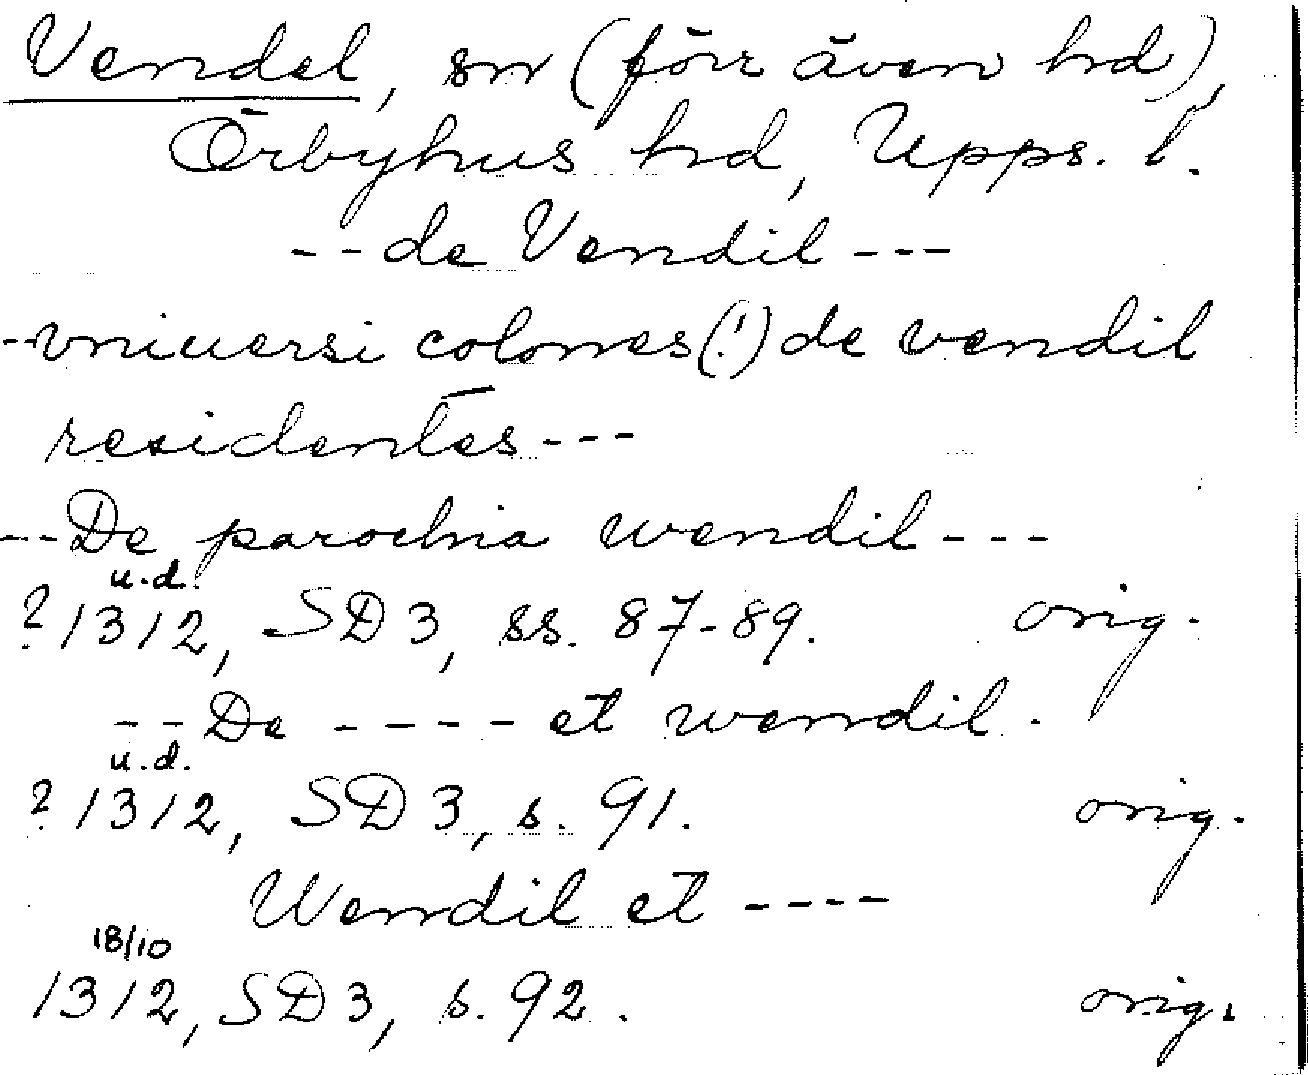 Vendel, sn (förr även hd),
Örbyhus hd, Upps. l.
--de Vendil---
--vniuersi colones(!) de vendil
residentes---
--De parochia wendil---
u.d.
?1312, SD 3, ss. 87-89. orig.
--De ---- et wendil.
u.d.
?1312, SD 3, s. 91. orig.
Wendil et ----
18/10
1312, SD 3, s. 92. orig.